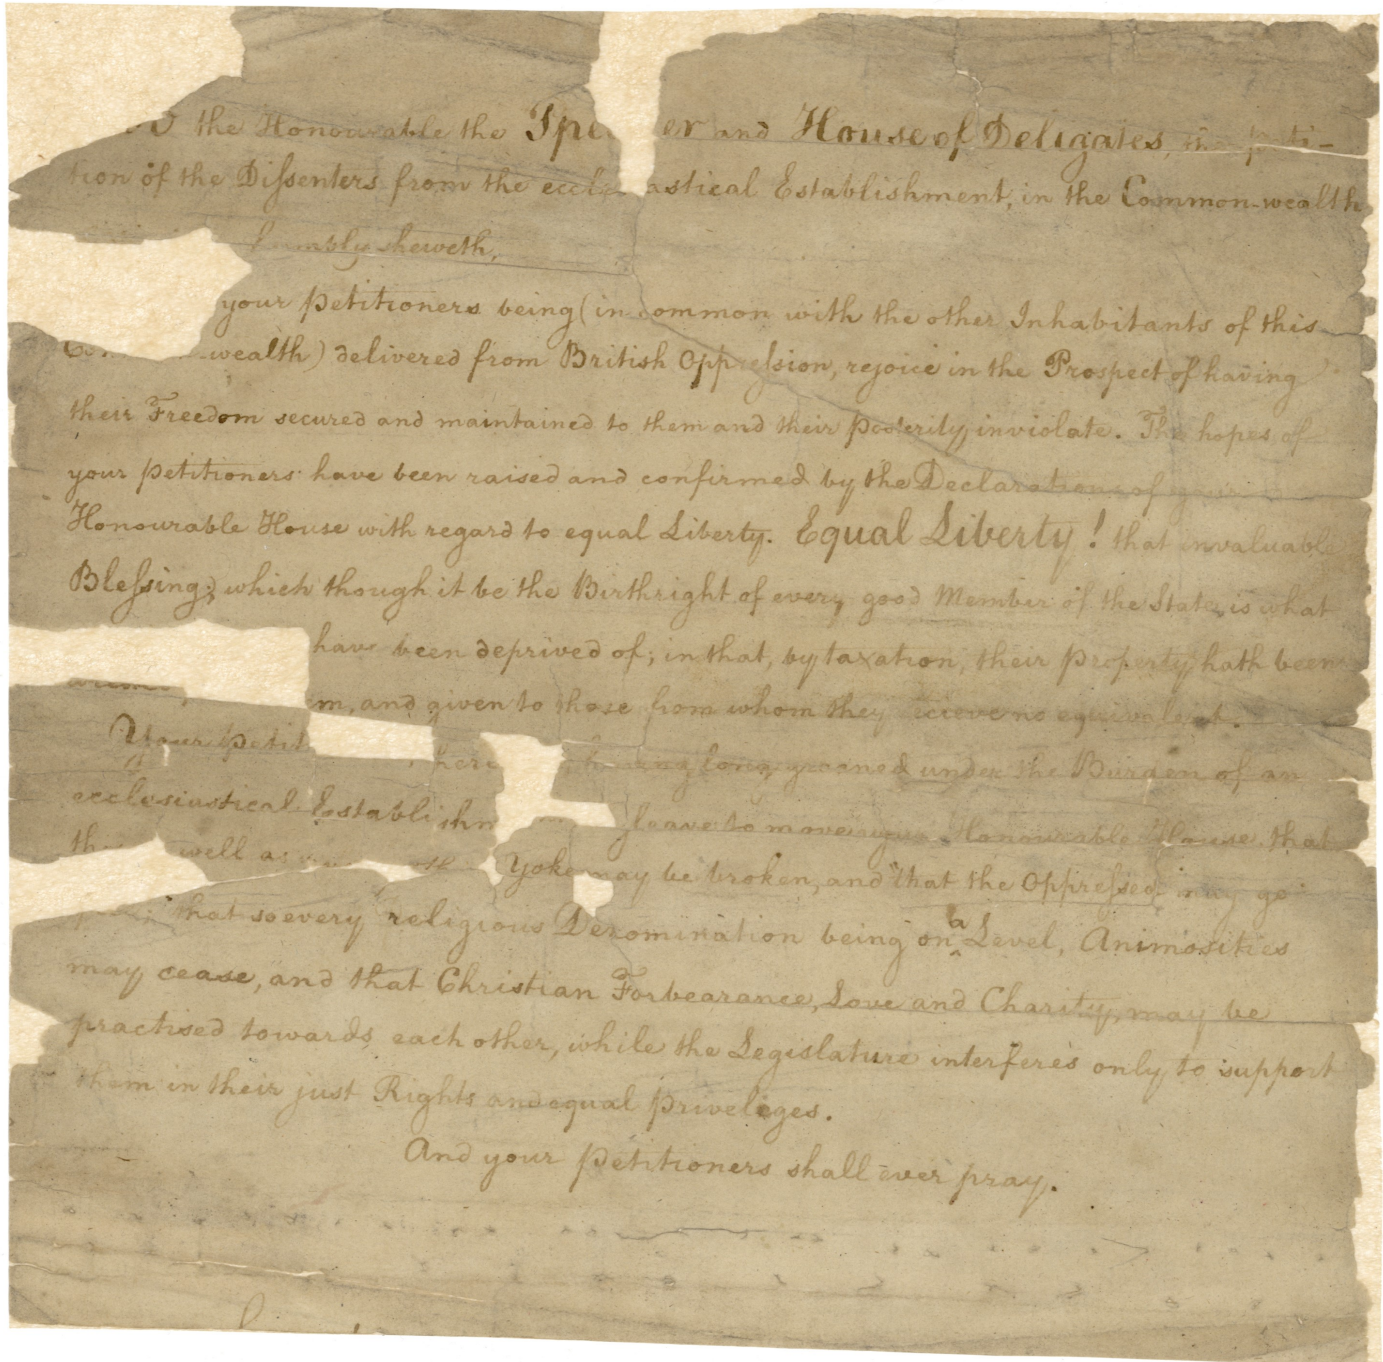 the Honourable the Spe er and House of Deligates, the peti-
tion of the Dissenters from the eccle astical Establishment, in the Common-wealth
humbly sheweth,
your petitioners being (in common with the other Inhabitants of this
Co wealth) delivered from British Oppression, rejoice in the Prospect of having
their Freedom secured and maintained to them and their posterity inviolate. The hopes of
your petitioners have been raised and confirmed by the Declarations of your
Honourable House with regard to equal Liberty. Equal Liberty! that invaluable
Blessing; which though it be the Birthright of every good Member of the State, is what
have been deprived of; in that, by taxation, their property hath been
m, and given to those from whom they recieve no equivalent.
Your petit here having long groaned under the Burden of an
ecclesiastical Establishm leave to move your Honourable House that
well as Yoke may be broken, and that the Oppressed may go
that so every religious Denomination being on a Level, Animosities
may cease, and that Christian Forbearance, Love and Charity, may be
practised towards each other, while the Legislature interferes only to support
them in their just Rights and equal priveleges.
And your petitioners shall ever pray.